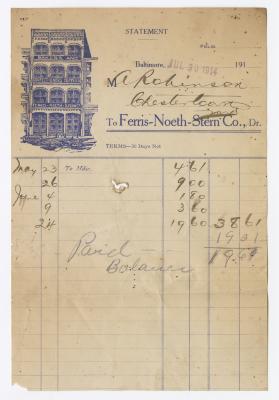 STATEMENT
Baltimore, JUL 30 1914 191
M A Robinson
Chestertown
To Ferris-Noeth-Stern Co., Dr.
TERMS—30 Days Net
May 23 To Mdse. 4 61
26 9 00
June 4 1 80
9 3 60
24 19 60 38 61
19 01
19 60
Paid
Balance